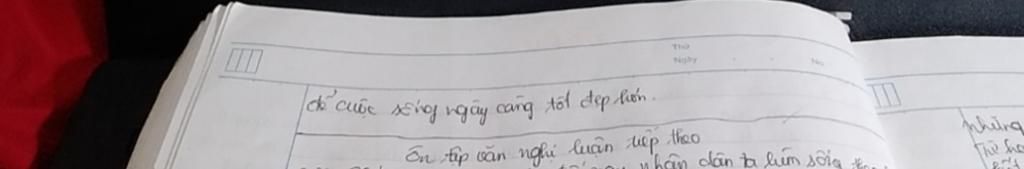 Thứ
Ngày . . No.
để cuộc sống ngày càng tốt đẹp hơn.
Ôn tập văn nghị luận tiếp theo
nhân dân ta
những